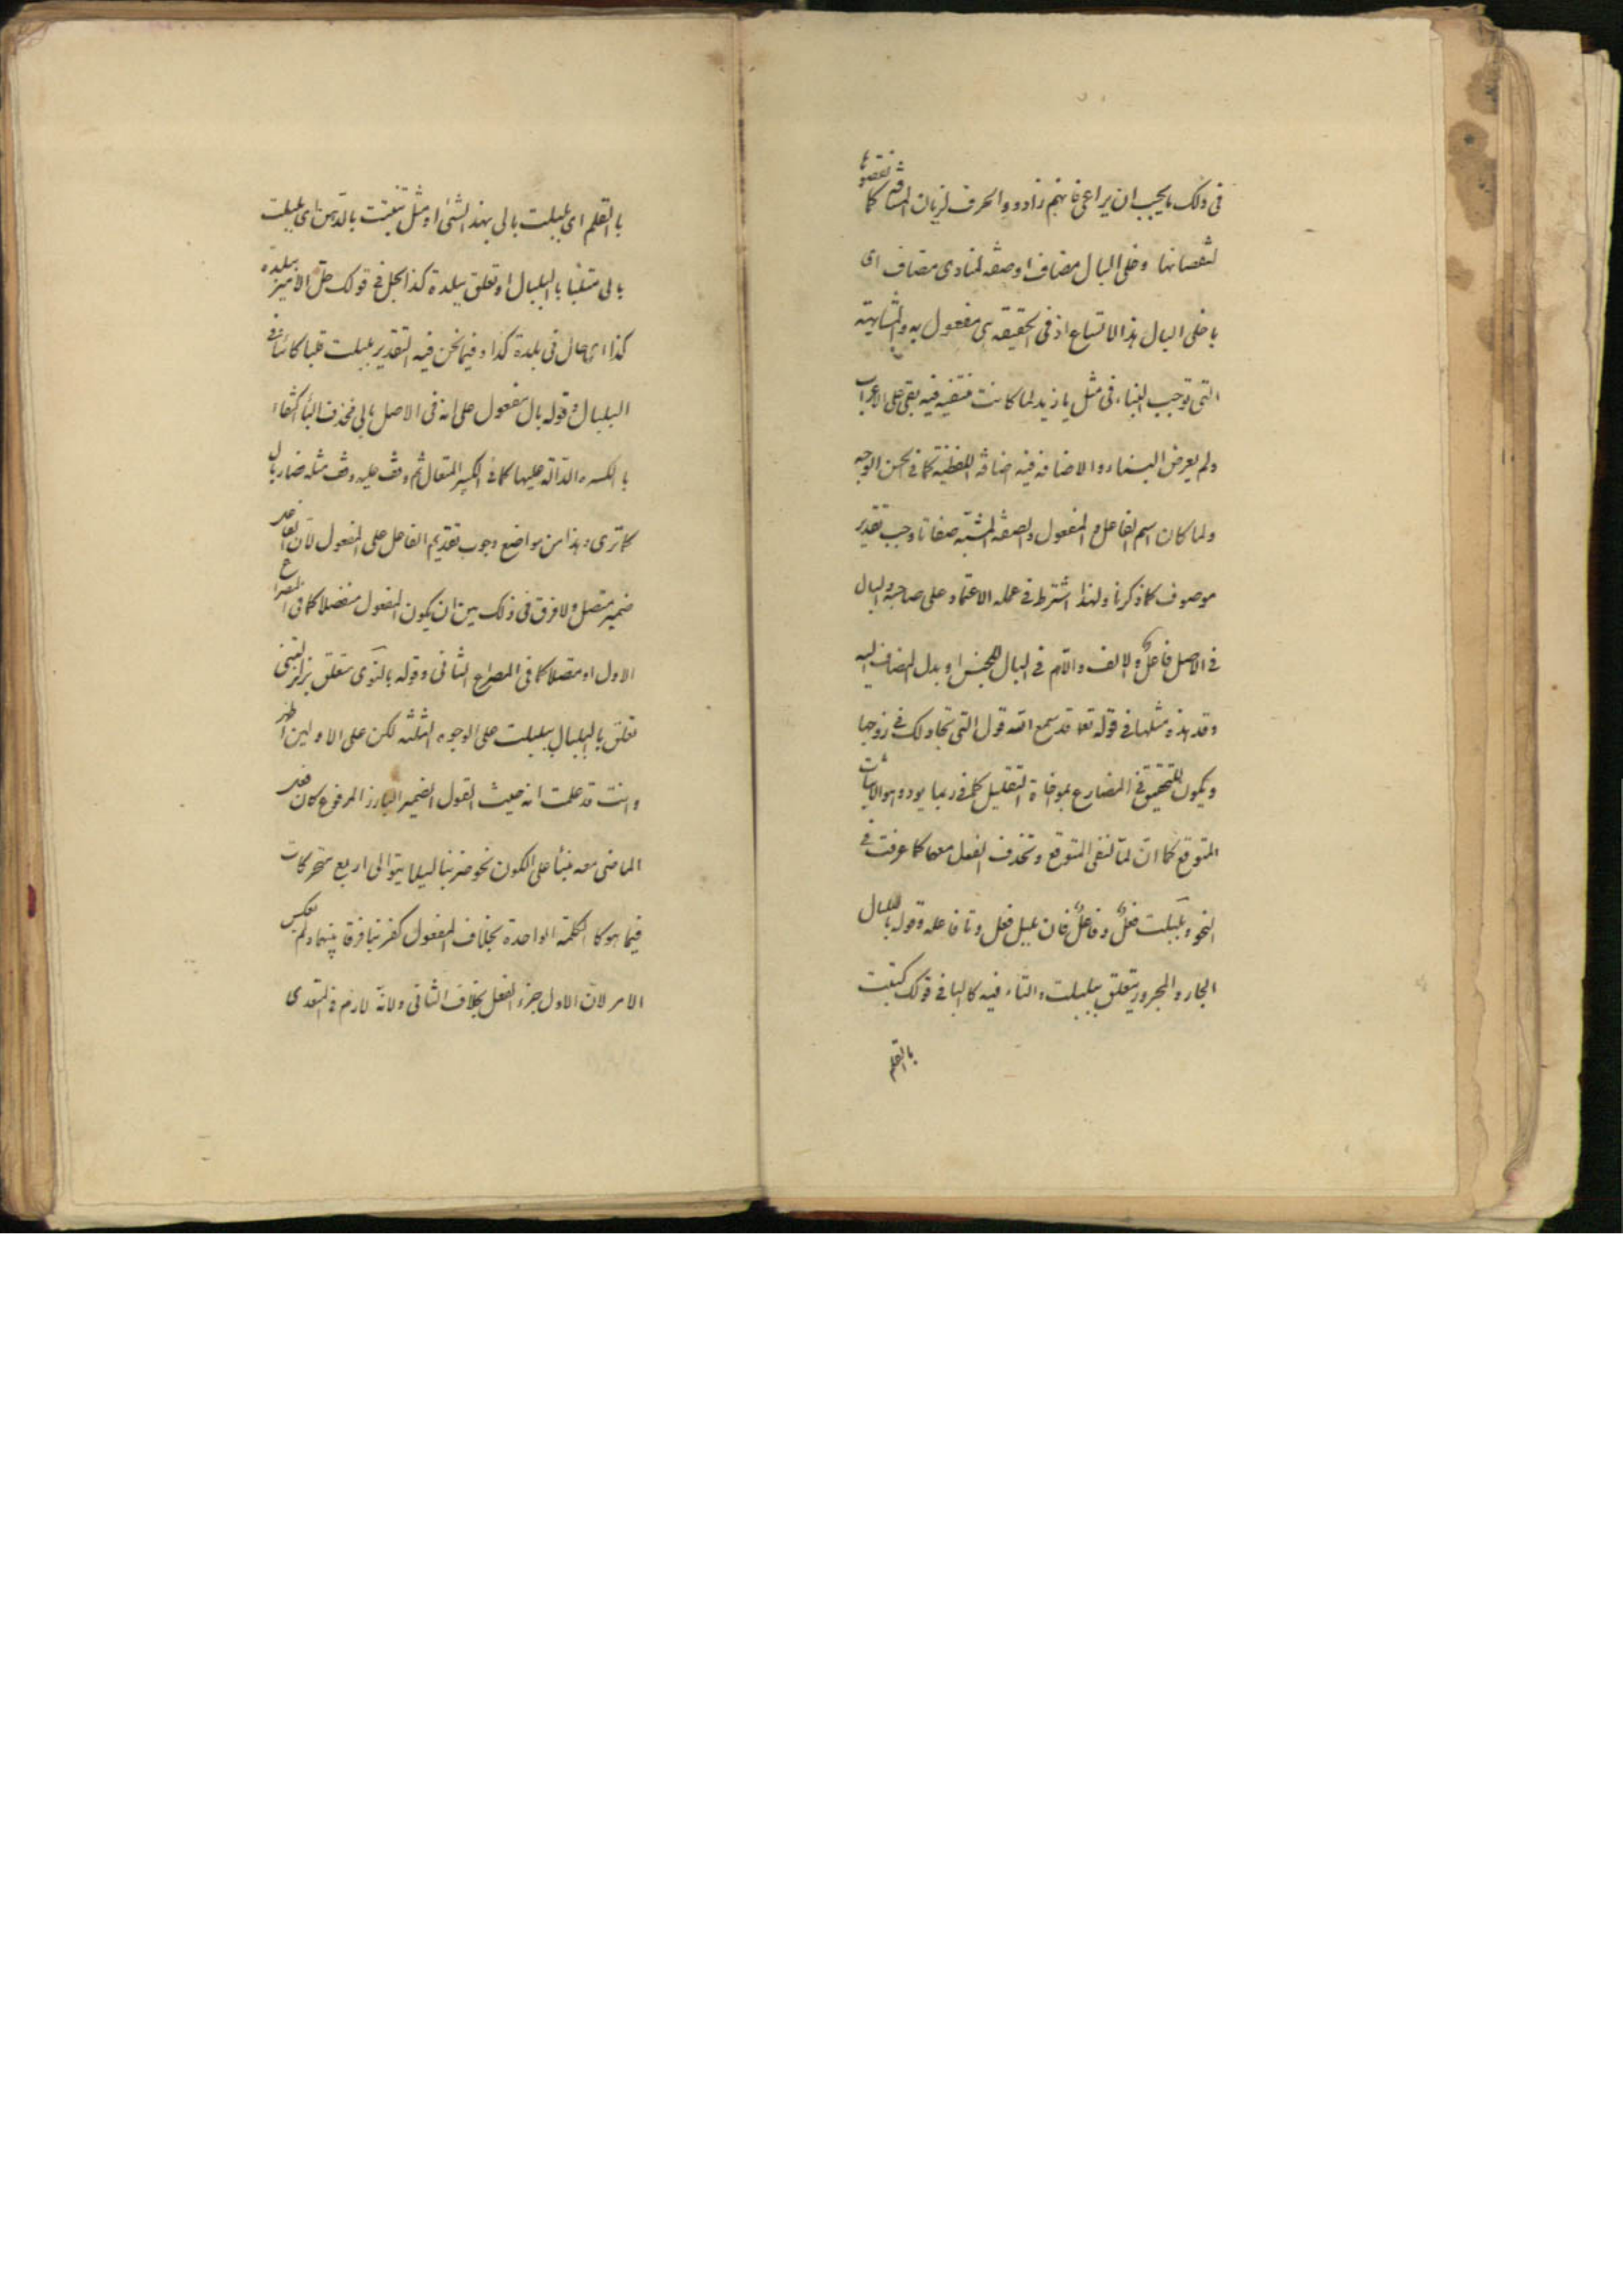 فى ذلك ما يجب ان يراعى فانهم زادوا الحرف لزيادن المسافة كما نقصوها
لنقصانها وخلى البال مضاف او صفه لمنادى مضاف اى
يا خلى البال هذا الاتساع اذ فى الحقيقه هى مفعول به والمشابهة
التى توجب البناء فى مثل يا زيد لما كانت منتفيه فيه بقى على الاعراب
ولم يعرض البناء والاضافه فيه اضافة اللفظية كما فى الحسن الوجه
ولما كان اسم الفاعل والمفعول والصفه المشبّهه صفات وجب تقدير
موصوف كما ذكرنا ولهذا اشترط فى عمله الاعتماد على صاحبه والبال
فى الاصل فاعلٌ والالف واللّام فى البال للجنس او بدل المضاف اليه
وقد هذه مثلها فى قوله تعا قد سمع الله قول التى تجادلك فى زوجها
ويكون للتحقيق فى المضارع التقليل كما فى ربما يود والاثبات
المتوقع كما انّ لمّا لنفى المتوقع وتحذف الفعل معها كما عرفت فى
النحو وبلبلت فعلٌ وفاعلٌ فان بلبل فعل وتا فاعله وقوله بالبلبال
الجار والمجرور يتعلق ببلبلت والباء فيه كالبا فى قولك كتبت
بالقلم
بالقلم اى بلبلت بالى بهذا الشئ او مثل تنبت بالدّهن اى بلبلت
بالى متلبّسا بالبلبال او تعلق ببلدة كذا الحل فى قولك حلّ الامير ببلدة
كذا اى حال فى بلدة كذا وفيما نحن فيه التقدير بلبلت قلبا كائنا فى
البلبال وقوله بال مفعول على انه فى الاصل بالى فحذف الياء اكتفاء
بالكسرة الدّالّة عليها كما فى الكبير المتعال ثم وقف عليه وقف مثله فصار بال
كما ترى وهذا من مواضع وجوب تقديم الفاعل على المفعول لانّ الفاعل
ضمير متصل ولا فرق فى ذلك بين ان يكون المفعول منفصلا كما فى المصراع
الاول او متصلا كما فى المصراع الثانى وقوله بالنّوى متعلق بزلزلتنى
تعلق بالبلبال ببلبلت على الوجوه الثلثه لكن على الاولين اظهر
وانت قد علمت انه حيث القول الضمير البارز المرفوع كان
الماضى معه مبنيا على السكون نحو ضربنا ليلا يتوالى اربع متحركات
فيما هو كا الكلمة الواحدة بخلاف المفعول كضربنا فرقا بينهما ولم يعكس
الامر لان الاول جزء الفعل بخلاف الثانى ولانّه لازم فى المتعدى